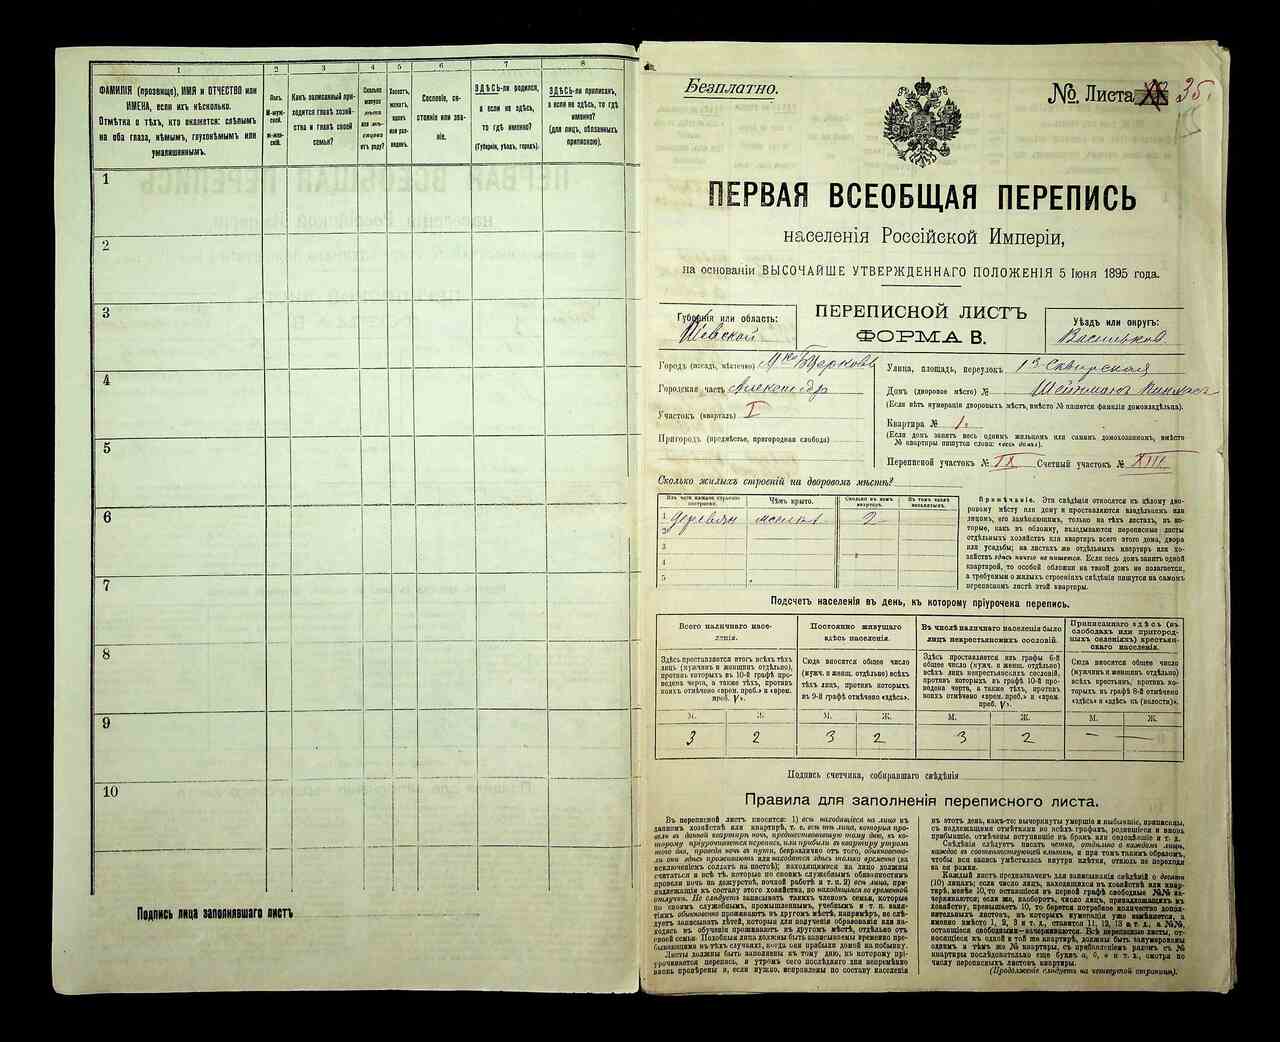 1
2
3
4
5
6
7
8
ФАМИЛІЯ (прозвище), ИМЯ и ОТЧЕСТВО или
ИМЕНА, если ихъ нѣсколько.
Отмѣтка о тѣхъ, кто окажется: слѣпымъ
на оба глаза, нѣмымъ, глухонѣмымъ или
умалишеннымъ.
Полъ.
М-муж-
ской.
ж-жен-
скій.
Какъ записанный при-
ходится главѣ хозяй-
ства и главѣ своей
семьи?
Сколько
минуло
лѣтъ
или мѣ-
сяцевъ
отъ роду?
Холостъ,
женатъ,
вдовъ
или раз-
веденъ.
Сословіе, со-
стояніе или зва-
ніе.
ЗДѢСЬ-ли родился,
а если не здѣсь,
то гдѣ именно?
(Губернія, уѣздъ, городъ).
ЗДѢСЬ-ли приписанъ,
а если не здѣсь, то гдѣ
именно?
(для лицъ, обязанныхъ
припискою).
1
2
3
4
5
6
7
8
9
10
Подпись лица заполнявшаго листъ
Безплатно.
№ Листа 35.
ПЕРВАЯ ВСЕОБЩАЯ ПЕРЕПИСЬ
населенія Россійской Имперіи,
на основаніи ВЫСОЧАЙШЕ УТВЕРЖДЕННАГО ПОЛОЖЕНІЯ 5 Іюня 1895 года.
Губернія или область:
ПЕРЕПИСНОЙ ЛИСТЪ
ФОРМА В.
Уѣздъ или округъ:
Васильков.
Городъ (посадъ, мѣстечко)
Городская часть Александр
Участокъ (кварталъ) I
Пригородъ (предмѣстье, пригородная слобода)
Улица, площадь, переулокъ 1я Сквирская
Домъ (дворовое мѣсто) №
(Если нѣтъ нумераціи дворовыхъ мѣстъ, вмѣсто № пишется фамилія домовладѣльца).
Квартира № 1.
(Если домъ занятъ весь однимъ жильцомъ или самимъ домохозяиномъ, вмѣсто
№ квартиры пишутся слова: «весь домъ»).
Переписной участокъ № IX Счетный участокъ № XIII
Сколько жилыхъ строеній на дворовомъ мѣстѣ?
Изъ чего каждое строеніе
построено.
Чѣмъ крыто.
Сколько въ немъ
квартиръ.
Въ томъ числѣ
незанятыхъ.
1 деревян 2
2
3
4
5
Примѣчаніе. Эти свѣдѣнія относятся къ цѣлому дво-
ровому мѣсту или дому и проставляются владѣльцемъ или
лицомъ, его замѣняющимъ, только на тѣхъ листахъ, въ ко-
торые, какъ въ обложку, вкладываются переписные листы
отдѣльныхъ хозяйствъ или квартиръ всего этого дома, двора
или усадьбы; на листахъ же отдѣльныхъ квартиръ или хо-
зяйствъ здѣсь ничего не пишется. Если весь домъ занятъ одной
квартирой, то особой обложки на такой домъ не полагается,
а требуемыя о жилыхъ строеніяхъ свѣдѣнія пишутся на самомъ
переписномъ листѣ этой квартиры.
Подсчетъ населенія въ день, къ которому пріурочена перепись.
Всего наличнаго насе-
ленія.
Постоянно живущаго
здѣсь населенія.
Въ числѣ наличнаго населенія было
лицъ некрестьянскихъ сословій.
Приписаннаго здѣсь (въ
слободахъ или пригород-
ныхъ селеніяхъ) крестьян-
скаго населенія.
Здѣсь проставляется итогъ всѣхъ тѣхъ
лицъ (мужчинъ и женщинъ отдѣльно),
противъ которыхъ въ 10-й графѣ про-
ведена черта, а также тѣхъ, противъ
коихъ отмѣчено «врем. преб.» и «врем.
преб. V».
Сюда вносится общее число
(мужч. и женщ. отдѣльно) всѣхъ
тѣхъ лицъ, противъ которыхъ
въ 9-й графѣ отмѣчено «здѣсь».
Здѣсь проставляется изъ графы 6-й
общее число (мужч. и женщ. отдѣльно)
всѣхъ лицъ некрестьянскихъ сословій,
противъ которыхъ въ графѣ 10-й про-
ведена черта, а также тѣхъ, противъ
коихъ отмѣчено «врем. преб.» и «врем.
преб. V».
Сюда вносится общее число
(мужчинъ и женщинъ отдѣльно)
всѣхъ крестьянъ, противъ ко-
торыхъ въ графѣ 8-й отмѣчено
«здѣсь» и «здѣсь къ (волости)».
М. Ж. М. Ж. М. Ж. М. Ж.
3 2 3 2 3 2 — —
Подпись счетчика, собиравшаго свѣдѣнія
Правила для заполненія переписного листа.
Въ переписной листъ вносятся: 1) всѣ находящіеся на лицо въ
данномъ хозяйствѣ или квартирѣ, т. е. всѣ тѣ лица, которыя про-
вели въ данной квартирѣ ночь, предшествовавшую тому дню, къ ко-
торому пріурочивается перепись, или прибыли въ квартиру утромъ
того дня, проведя ночь въ пути, безразлично отъ того, обыкновенно-
ли они здѣсь проживаютъ или находятся здѣсь только временно (за
исключеніемъ солдатъ на постоѣ); находящимися на лицо должны
считаться и всѣ тѣ, которые по своимъ служебнымъ обязанностямъ
провели ночь на дежурствѣ, ночной работѣ и т. п. 2) всѣ лица, при-
надлежащія къ составу этого хозяйства, но находящіяся во временной
отлучкѣ. Не слѣдуетъ записывать такихъ членовъ семьи, которые
по своимъ служебнымъ, промышленнымъ, учебнымъ и т. п. заня-
тіямъ обыкновенно проживаютъ въ другомъ мѣстѣ, напримѣръ, не слѣ-
дуетъ записывать дѣтей, которыя для полученія образованія или на-
ходясь въ обученіи проживаютъ въ другомъ мѣстѣ, отдѣльно отъ
своей семьи. Подобныя лица должны быть записываемы временно пре-
бывающими въ тѣхъ случаяхъ, когда они прибыли домой на побывку.
Листы должны быть заполнены къ тому дню, къ которому прі-
урочивается перепись, и утромъ сего послѣдняго дня непремѣнно
вновь провѣрены и, если нужно, исправлены по составу населенія
въ этотъ день, какъ-то: вычеркнуты умершіе и выбывшіе, приписаны,
съ надлежащими отмѣтками во всѣхъ графахъ, родившіеся и вновь
прибывшіе, отмѣчены вступившіе въ бракъ или овдовѣвшіе и т. д.
Свѣдѣнія слѣдуетъ писать четко, отдѣльно о каждомъ лицѣ,
каждое въ соотвѣтствующей клѣткѣ, и при томъ такимъ образомъ,
чтобы вся запись умѣстилась внутри клѣтки, отнюдь не переходя
за ея рамки.
Каждый листъ предназначенъ для записыванія свѣдѣній о десяти
(10) лицахъ; если число лицъ, находящихся въ хозяйствѣ или квар-
тирѣ, менѣе 10, то оставшіеся въ первой графѣ свободные №№ за-
черкиваются; если же, наоборотъ, число лицъ, принадлежащихъ къ
хозяйству, превышаетъ 10, то берется потребное количество допол-
нительныхъ листовъ, въ которыхъ нумерація уже измѣняется, а
именно вмѣсто 1, 2, 3 и т. д., ставится 11, 12, 13 и т. д., а №№,
оставшіеся свободными—зачеркиваются. Всѣ переписные листы, от-
носящіеся къ одной и той же квартирѣ, должны быть занумерованы
однимъ и тѣмъ же № квартиры, съ прибавленіемъ рядомъ съ №
квартиры послѣдовательно еще буквъ а, б, в и т. д., смотря по
числу переписныхъ листовъ квартиры.
(Продолженіе слѣдуетъ на четвертой страницѣ).